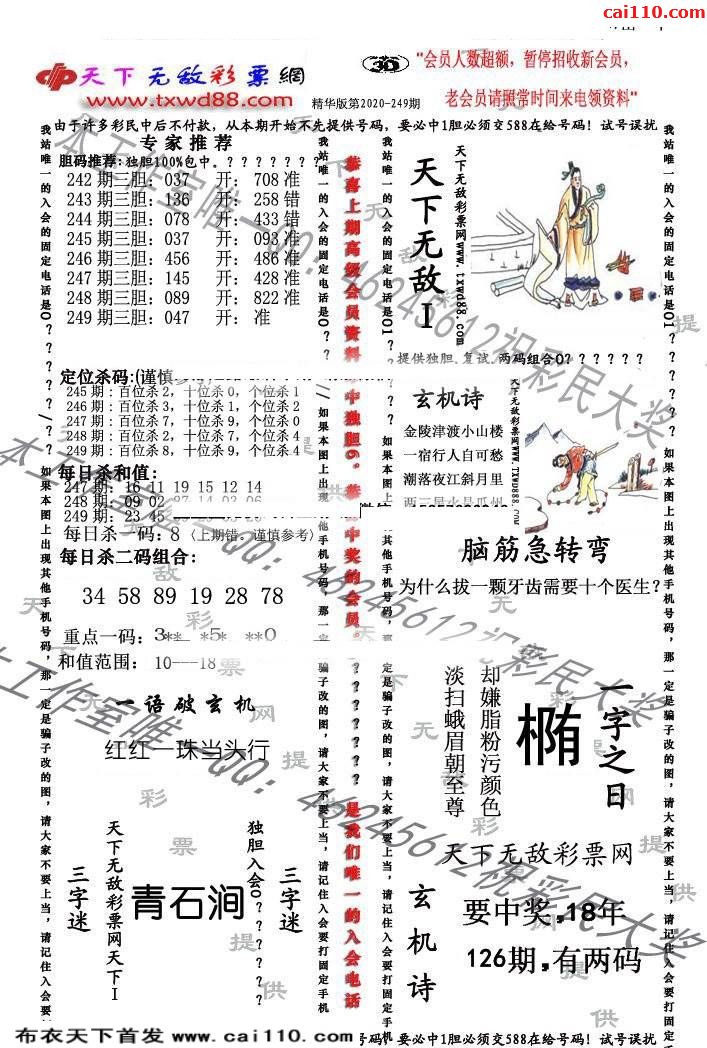 cai110.com
天下无敌彩票網
www.txwd88.com
精华版第2020-249期
30
"会员人数超额，暂停招收新会员，
老会员请照常时间来电领资料"
由于许多彩民中后不付款，从本期开始不先提供号码，要必中1胆必须交588在给号码！试号误扰
专家推荐
胆码推荐:独胆100%包中。？？？？？？？
242期三胆：037 开：708准
243期三胆：136 开：258错
244期三胆：078 开：433错
245期三胆：037 开：093准
246期三胆：456 开：486准
247期三胆：145 开：428准
248期三胆：089 开：822准
249期三胆：047 开：准
定位杀码:(谨慎
245期：百位杀2，十位杀0，个位杀1
246期：百位杀3，十位杀1，个位杀2
247期：百位杀7，十位杀9，个位杀0
248期：百位杀2，十位杀7，个位杀4
249期：百位杀8，十位杀9，个位杀4
每日杀和值：
247期：16 11 19 15 12 14
248期：09 02
249期：23 45
每日杀一码：8（上期错。谨慎参考）
每日杀二码组合：
34 58 89 19 28 78
重点一码：3** *5* **0
和值范围：10---18
一语破玄机
红红一珠当头行
三字迷
天下无敌彩票网天下I
青石涧
独胆入会0？？？？？？？
三字迷
我站唯一的入会的固定电话是0？？？？？？？/？？
如果本图上出现其他手机号码，那一定是骗子改的图，请大家不要上当，请记住入会要打固定手机
恭喜上期高级会员资料
中独胆6。恭
中奖的会员。
？？？？？？？是我们唯一的入会电话
我站唯一的入会的固定电话是01？？？？？？？
天下无敌I
天下无敌彩票网www.txwd88.com
提供独胆、复试、两码组合0？？？？？？
玄机诗
金陵津渡小山楼
一宿行人自可愁
潮落夜江斜月里
两三星火是瓜州
天下无敌彩票网www.TXWD88.com
脑筋急转弯
为什么拔一颗牙齿需要十个医生？
却嫌脂粉污颜色
淡扫蛾眉朝至尊
椭
一字之曰
天下无敌彩票网
玄机诗
要中奖,18年
126期,有两码
本工作室唯一QQ：46245612祝彩民大奖
天下无敌彩票网提供
布衣天下首发 www.cai110.com
号码，要必中1胆必须交588在给号码！试号误扰